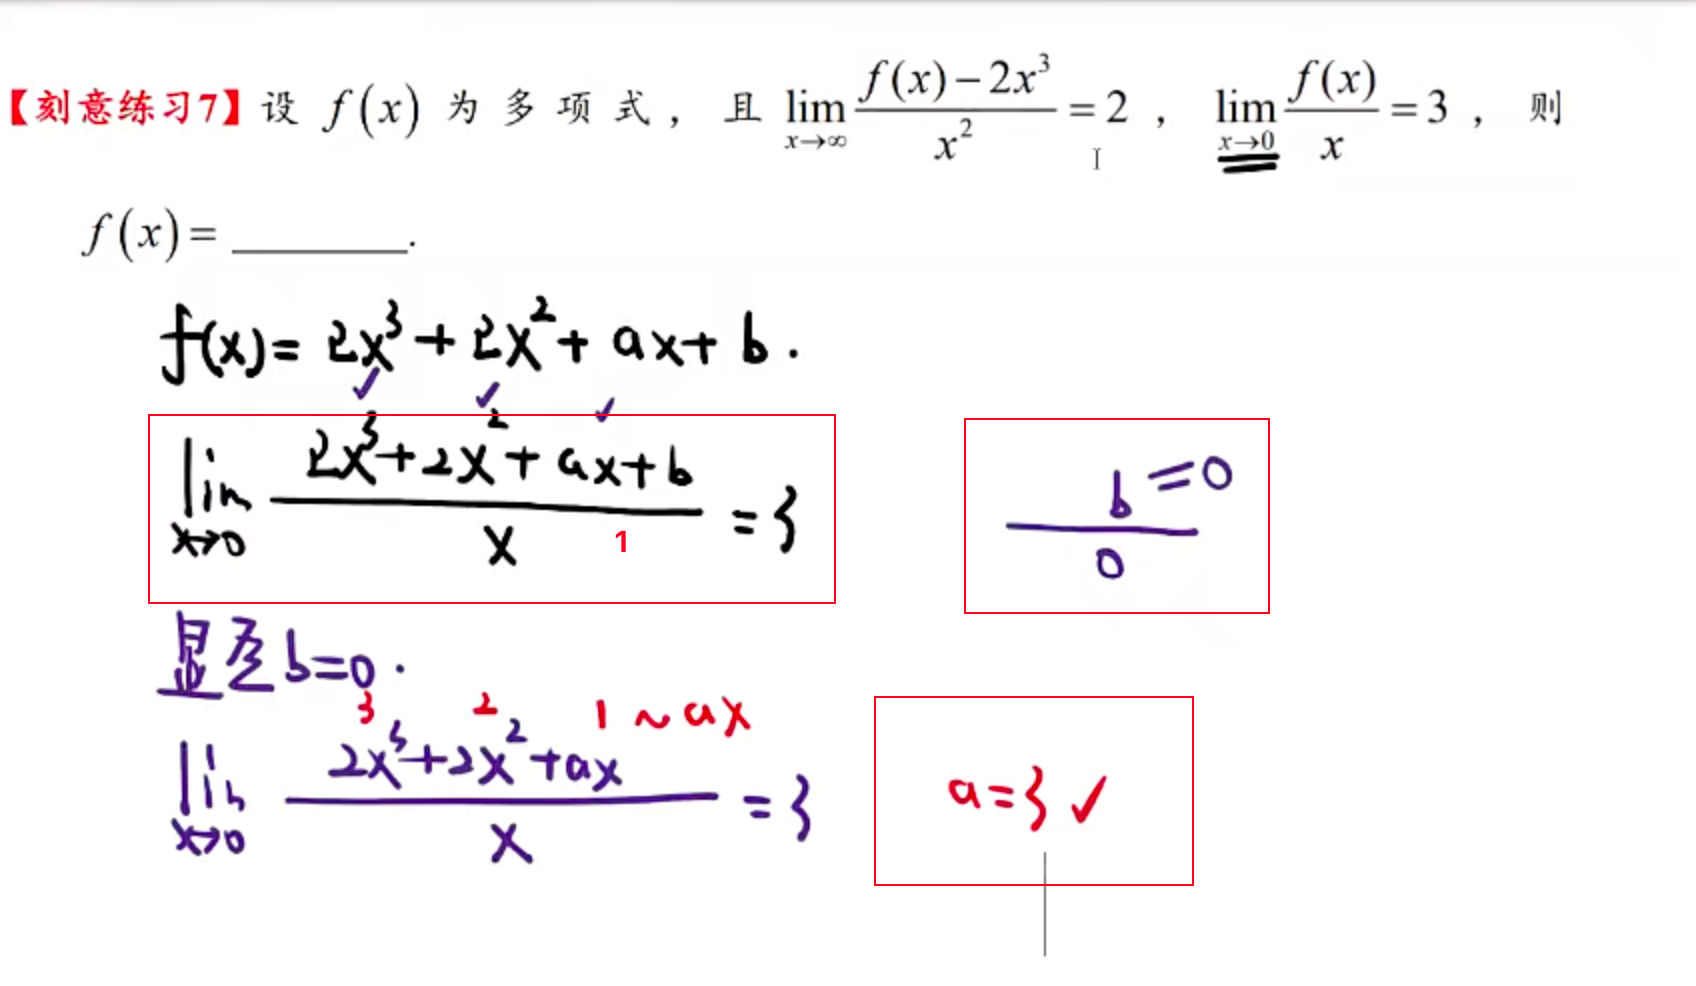 【刻意练习7】设 f(x) 为多项式，且 lim_{x→∞} (f(x)-2x³)/x² = 2，lim_{x→0} f(x)/x = 3，则
f(x) = ________.
f(x) = 2x³ + 2x² + ax + b .
✓ ✓ ✓
lim_{x→0} (2x³+2x²+ax+b)/x = 3
1
b = 0
0
显然 b=0 .
3 2 1 ~ ax
lim_{x→0} (2x³+2x²+ax)/x = 3
a=3 ✓